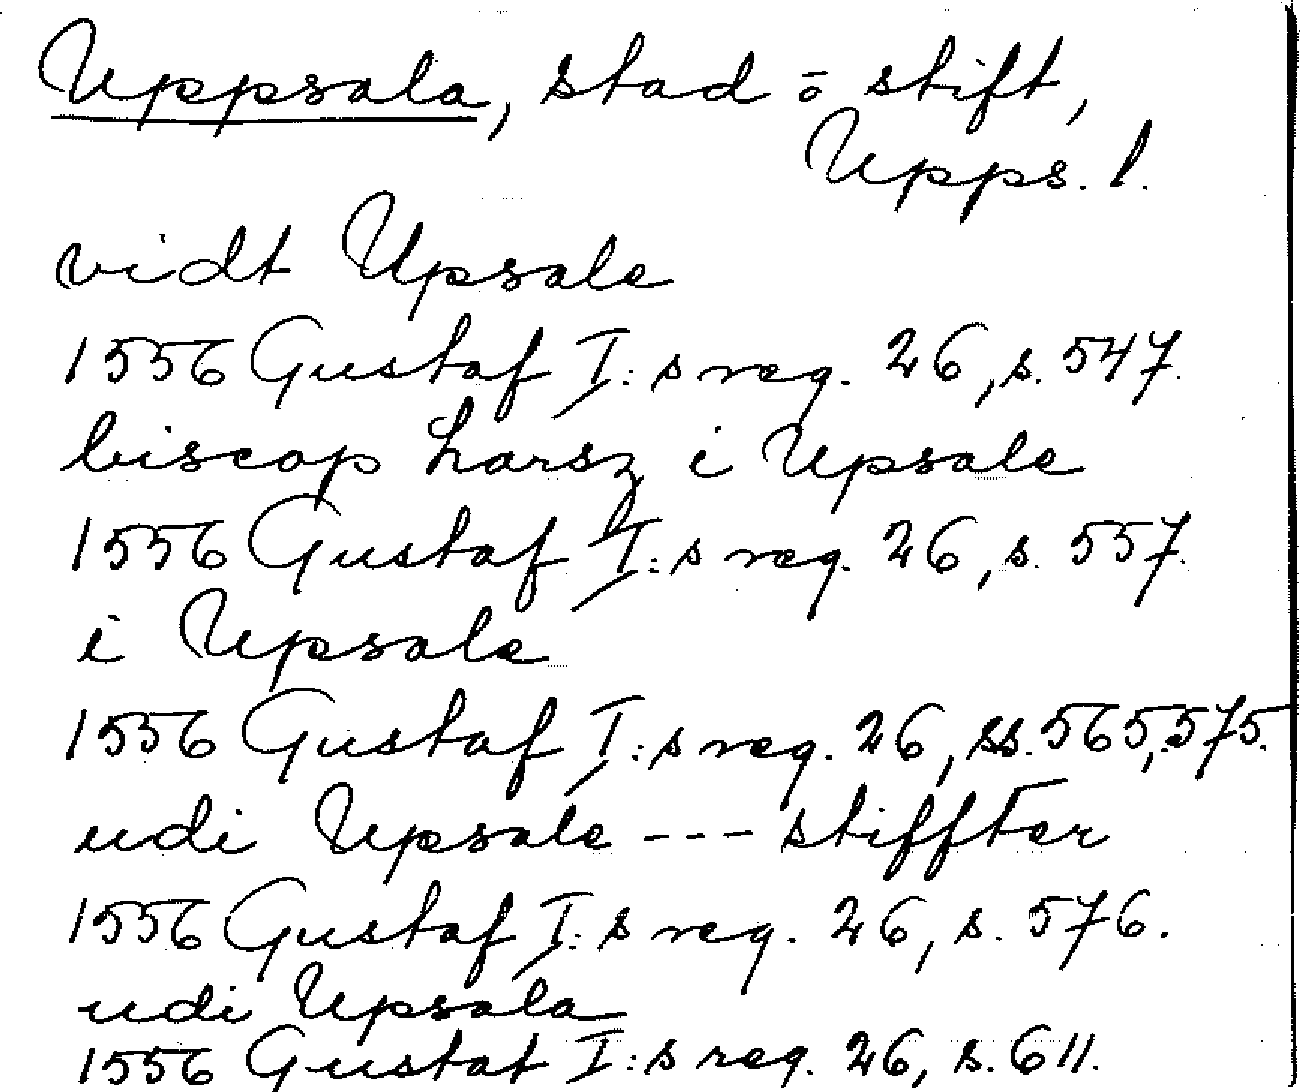 Uppsala, stad o stift,
Upps. l.
vidt Upsale
1556 Gustaf I:s reg. 26, s. 547.
biscop Larsz i Upsale
1556 Gustaf I:s reg. 26, s. 557.
i Upsale
1556 Gustaf I:s reg. 26, ss. 565, 575.
udi Upsale --- stiffter
1556 Gustaf I:s reg. 26, s. 576.
udi Upsala
1556 Gustaf I:s reg. 26, s. 611.